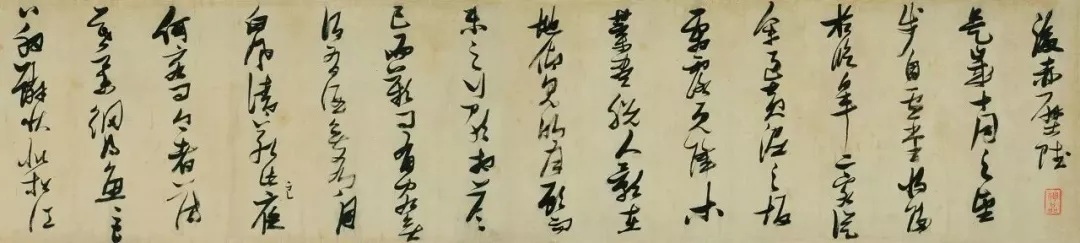 後赤壁賦
是歲十月之望
步自雪堂將歸
於臨皋二客從
余過黃泥之坂
霜露既降木
葉盡脫人影在
地仰見明月顧而
樂之行歌相答
已而歎曰有客無
酒有酒無肴月
白風清如此良夜
何客曰今者薄
暮舉網得魚巨
口細鱗狀似松江